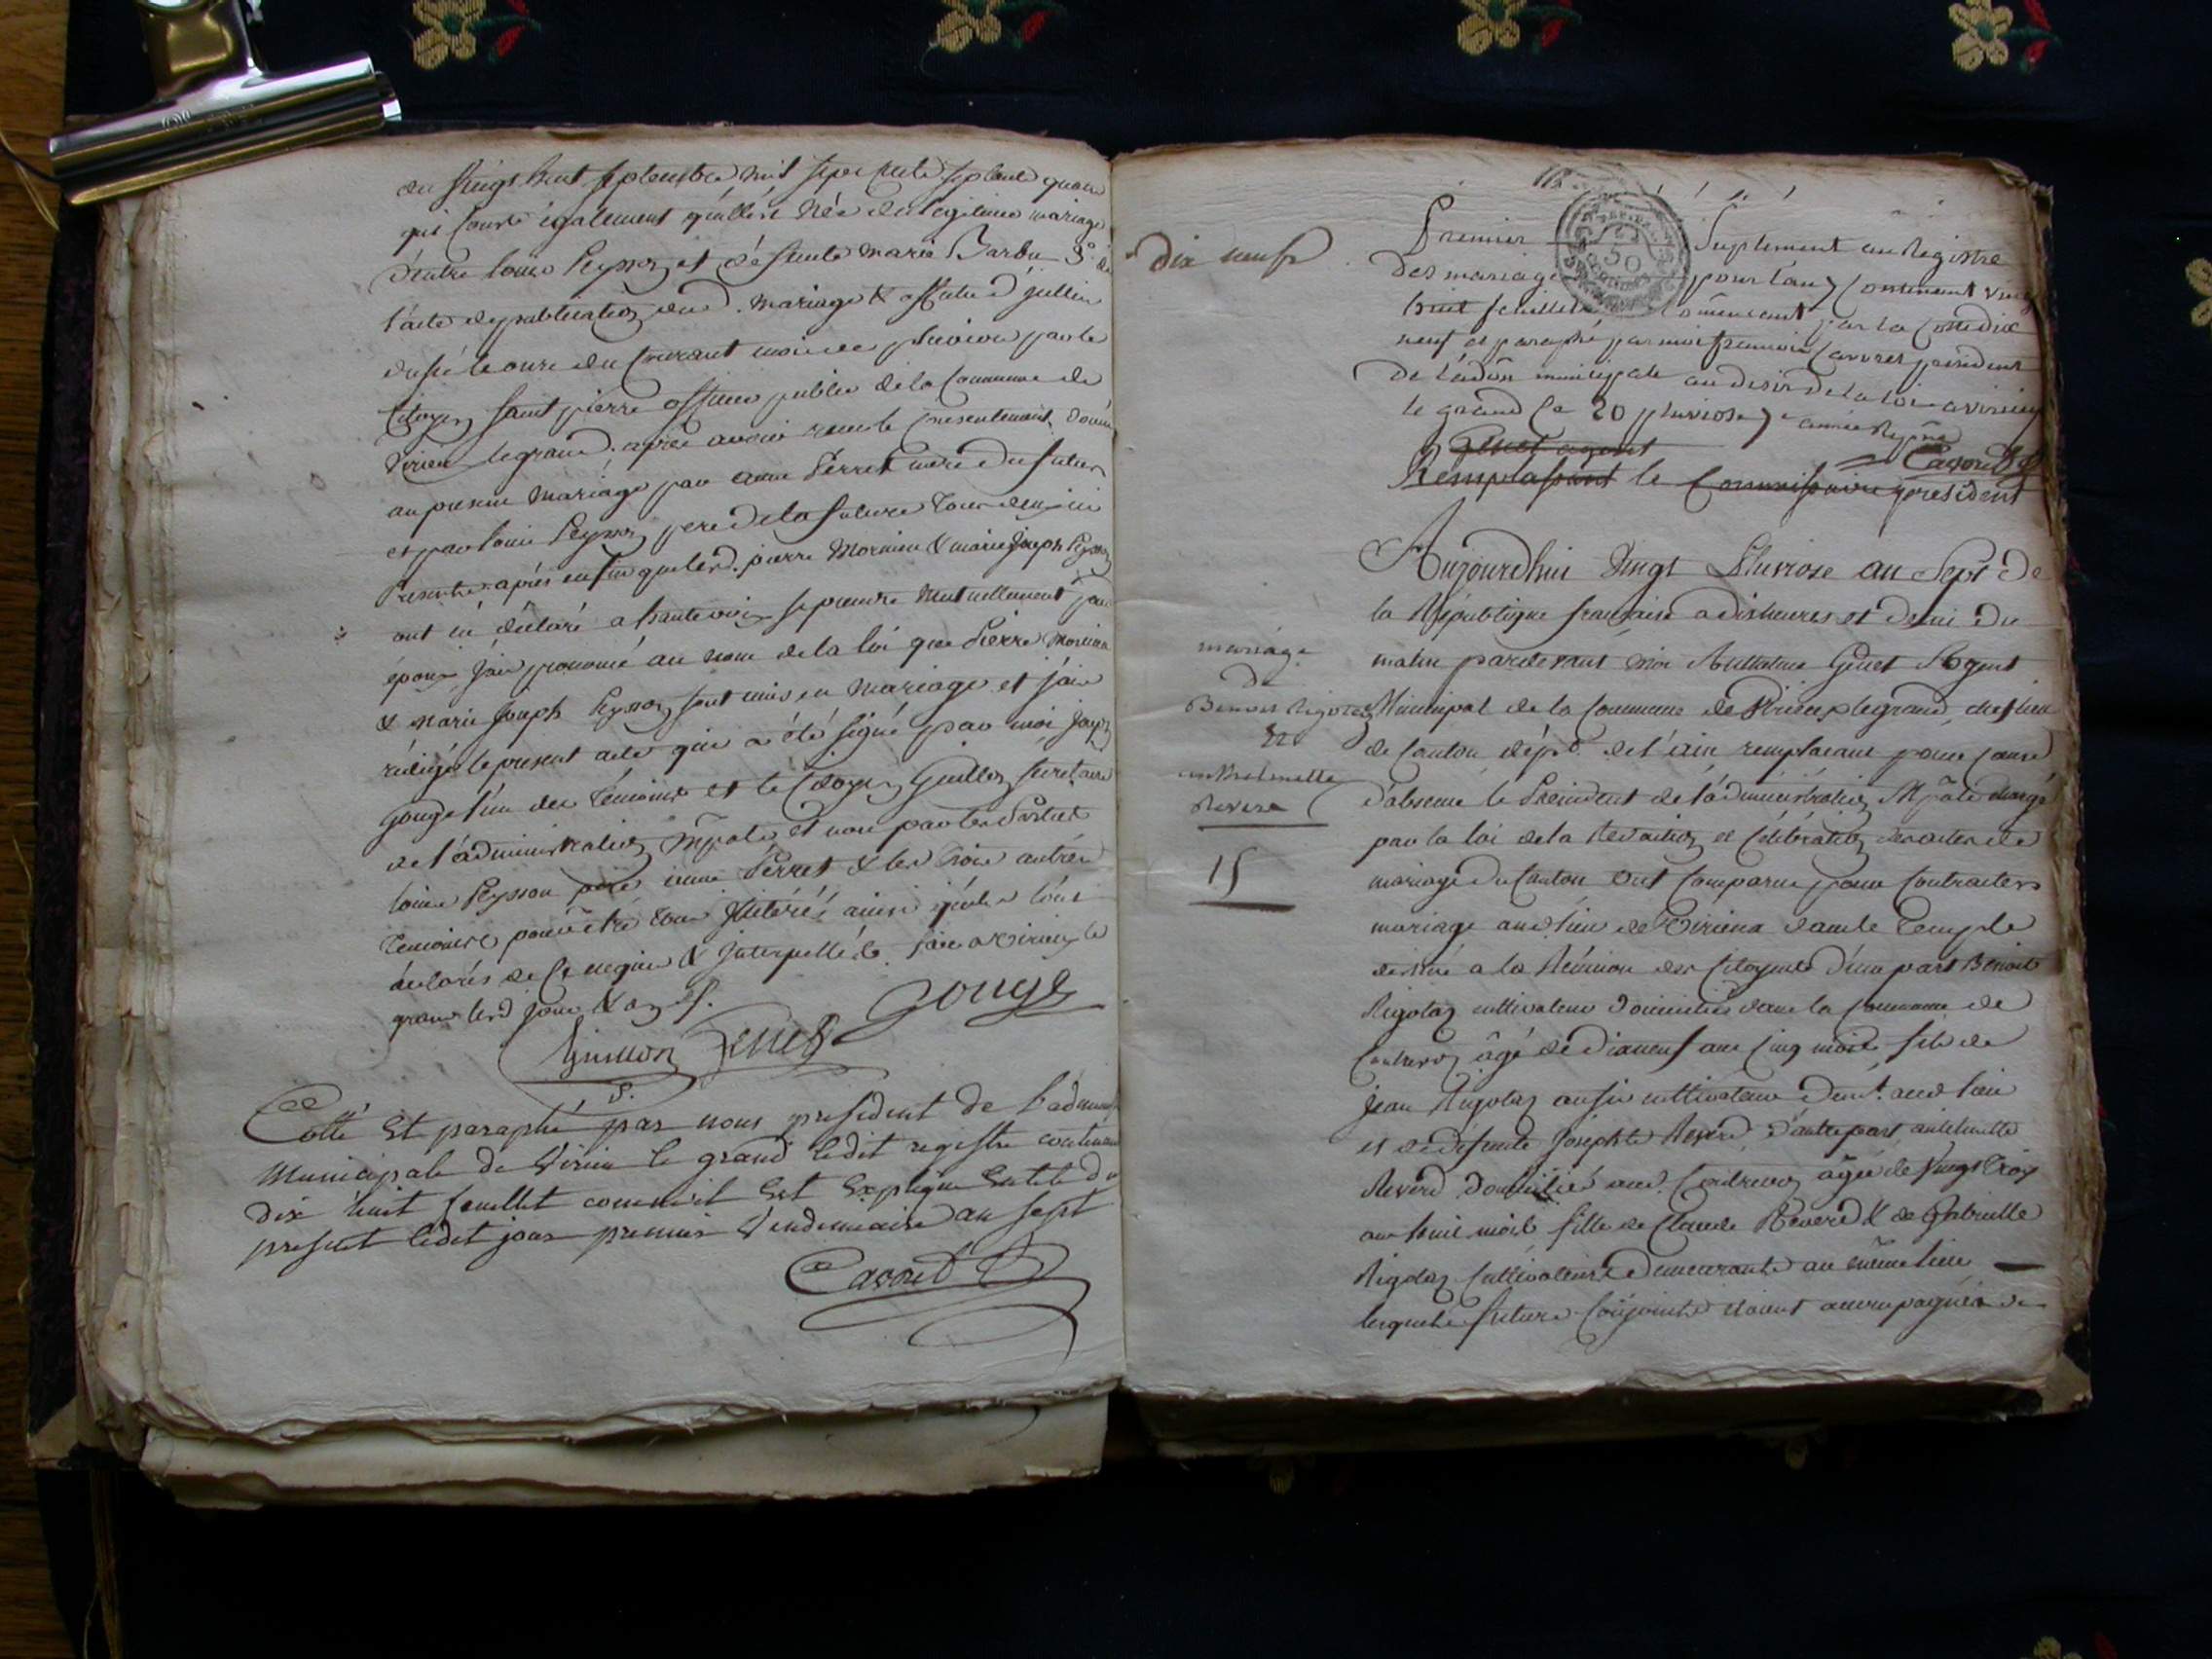 du vingt huit septembre mil sept cent septante quatre
qui conste également qu'elle est née du légitime mariage
d'entre louis Peysson et défunte marie Barbe 3° de
l'acte de publication dud. mariage & affiche d'jcelui
du onze du Courant mois de pluviose par le
Citoyen saint pierre officier public de la Commune de
Virieu legrand. après avoir reçu le consentement donné
au présent mariage par anne Perret mere du futur
et par louis Peysson pere de la future tous deux ici
Présents après enfin que lesd. pierre Mornieu & marie Joseph Peysson
ont eu déclaré a haute voix se prendre Mutuellement pour
époux j'ai prononcé au nom de la loi que Pierre Mornieu
& marie Joseph Peysson sont unis en mariage et j'ai
rédigé le present acte qui a été signé par moi Joseph
Gouge l'un des temoins et le Citoyen Guillon secretaire
de l'administration Mpale et non par les Parties
louis Peysson père anne Perret & les trois autres
temoins pour être tous jlitérés ainsi qu'ils l'ont
déclarés de ce enquis & Interpellés. fait a Virieu le
grand lesd jour & an s.
Gouge
Guillon Genet
s.
Cotté Et paraphé par nous president de l'administ
Municipale de Virieu le grand ledit registre contenant
dix huit feuillet comme il Est Expliqué En tete du
present ledit jour premier Vendemiaire an sept
Cavoret
dix neuf
Premier Suplement au Registre
des mariages pour l'an 7 Contenant vingt
huit feuillets comencant par la Cotte dix
neuf et paraphé par moi president
de l'adon municipale au desir de la loi a virieu
le grand Ce 20 pluviose 7e année Repne
Genet agent
Cavoret
Remplassant le Commissaire president
Aujourdhui Vingt Pluviose an Sept de
la République francaise a dix heures et demi du
matin pardevant moi Anthelme Genet Agent
Municipal de la Commune de Virieu legrand, chef lieu
de Canton dépt. de l'ain remplacant pour cause
d'absence le Président de l'administration Mpale chargé
par la loi de la Rédaction et Célébration des actes de
mariage du Canton Ont Comparu pour Contracter
mariage aud. lieu de Virieux dans le Temple
destiné a la Réunion des Citoyens d'une part Benoit
Rigolaz cultivateur domicilié dans la Commune de
Contrevoz âgé de dix neuf ans Cinq mois fils de
Jean Rigolaz aussi cultivateur demt. aud. lieu
et de défunte Josephte Revérd d'autre part anthelmette
Reverd domiciliée aud. Contrevoz âgée de Vingt trois
ans huit mois fille de Claude Reverd & de Gabrielle
Rigolaz Cultivateurs demeurants au même lieu
lesquels futurs Conjoints etoient accompagnés de
mariage
de
Benoit Rigolaz
Et
anthelmette
Revere
15